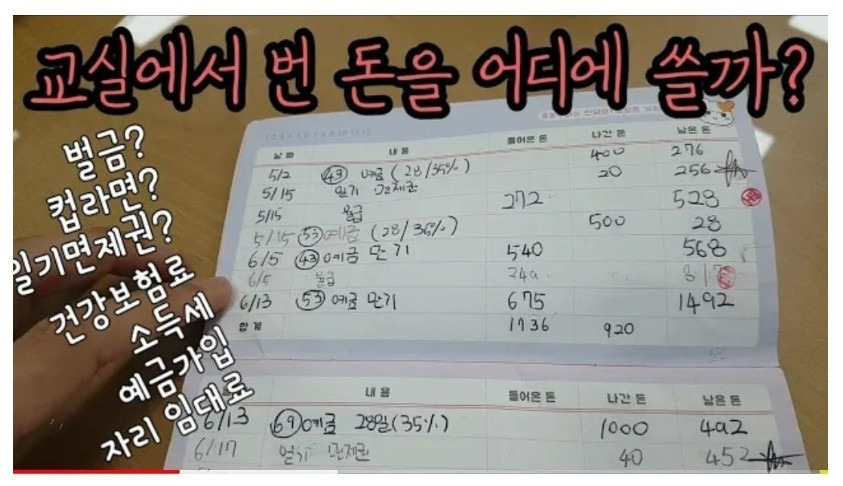 교실에서 번 돈을 어디에 쓸까?
벌금?
컵라면?
일기면제권?
건강보험료
소득세
예금가입
자리 임대료
날짜 내용 들어온 돈 나간 돈 남은 돈
5/2 43 예금(28/35%) 400 276
5/15 일기 면제권 20 256
5/15 월급 272 528
5/15 53 예금(28/35%) 500 28
6/5 43 예금 만기 540 568
6/5 월급 249 817
6/13 53 예금 만기 675 1492
합계 1736 920
내용 들어온 돈 나간 돈 남은 돈
6/13 69 예금 28일(35%) 1000 492
6/17 일기 면제권 40 452